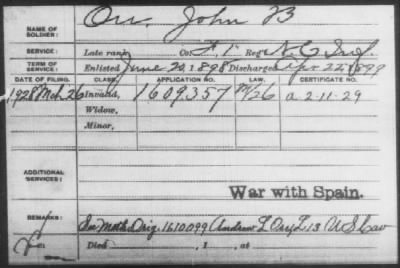 NAME OF SOLDIER: Orr, John B
SERVICE: Late rank, Co. F 1" Reg't N.C. Inf.
TERM OF SERVICE: Enlisted June 20, 1898 Discharged Apr. 22, 1899
DATE OF FILING. CLASS. APPLICATION NO. LAW. CERTIFICATE NO.
1928 Mch 26 Invalid, 1609357 a 2-11-29
Widow,
Minor,
ADDITIONAL SERVICES:
War with Spain.
REMARKS: Orig. 1610099 Andrew L Orr, L 13 U S Cav
Died , 1 , at